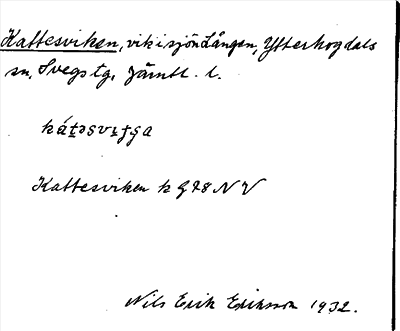 Kattesviken, vik i sjön Lången, Ytterhogdals
sn, Svegs tg, Jämtl. l.
Kattesviken k G78 NV
Nils Erik Eriksson 1932.